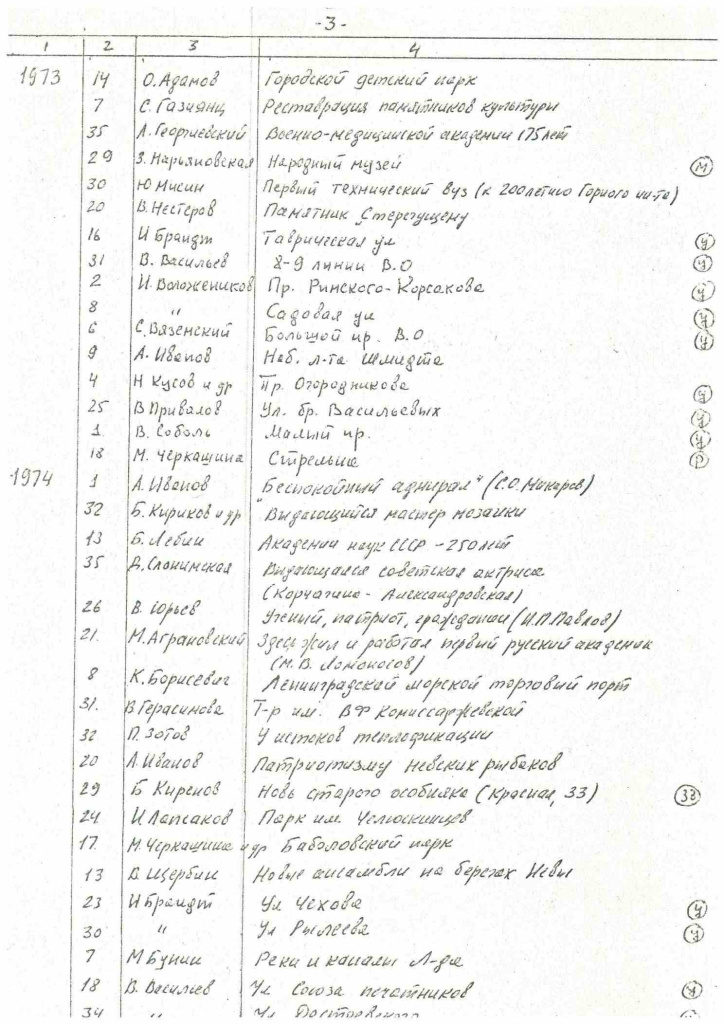 -3-
1 2 3 4
1973 14 О. Адамов Городской детский парк
7 С. Газиянц Реставрация памятников культуры
35 Л. Георгиевский Военно-медицинской академии 175 лет
29 З. Нарьяновская Народный музей М
30 Ю Мисин Первый технический вуз (к 200летию Горного ин-та)
20 В. Нестеров Памятник Стерегущему
16 И Брандт Таврическая ул У
31 В. Васильев 8-9 линии В.О У
2 И. Воложеников Пр. Римского-Корсакова У
8 " Садовая ул У
6 С. Вяземский Большой пр. В.О У
9 А. Иванов Наб. л-та Шмидта
4 Н Кусов и др Пр. Огородникова У
25 В Привалов Ул. бр. Васильевых У
1 В. Соболь Малый пр. У
18 М. Черкашина Стрельна Р
1974 1 А. Иванов "Беспокойный адмирал" (С.О. Макаров)
32 Б. Кириков и др Выдающийся мастер мозаики
13 Б. Левин Академии наук СССР - 250 лет
35 Д. Слонимская Выдающаяся советская актриса
(Корчагина-Александровская)
26 В. Юрьев Ученый, патриот, гражданин (И.П. Павлов)
21. М. Аграновский Здесь жил и работал первый русский академик
(М. В. Ломоносов)
8 К. Борисевич Ленинградский морской торговый порт
31. В Герасимова Т-р им. ВФ Комиссаржевской
32 П. Зотов У истоков теплофикации
20 А. Иванов Патриотизму невских рыбаков
29 Б Киреков Новь старого особняка (Красная, 33) 33
24 И Лапсаков Парк им. Челюскинцев
17. М. Черкашина и др Баболовский парк
13 В. Щербин Новые ансамбли на берегах Невы
23 И Брандт Ул Чехова У
30 " Ул Рылеева У
7 М Бунин Реки и каналы Л-да
18 В. Васильев Ул Союза печатников У
34 " Ул Достоевского